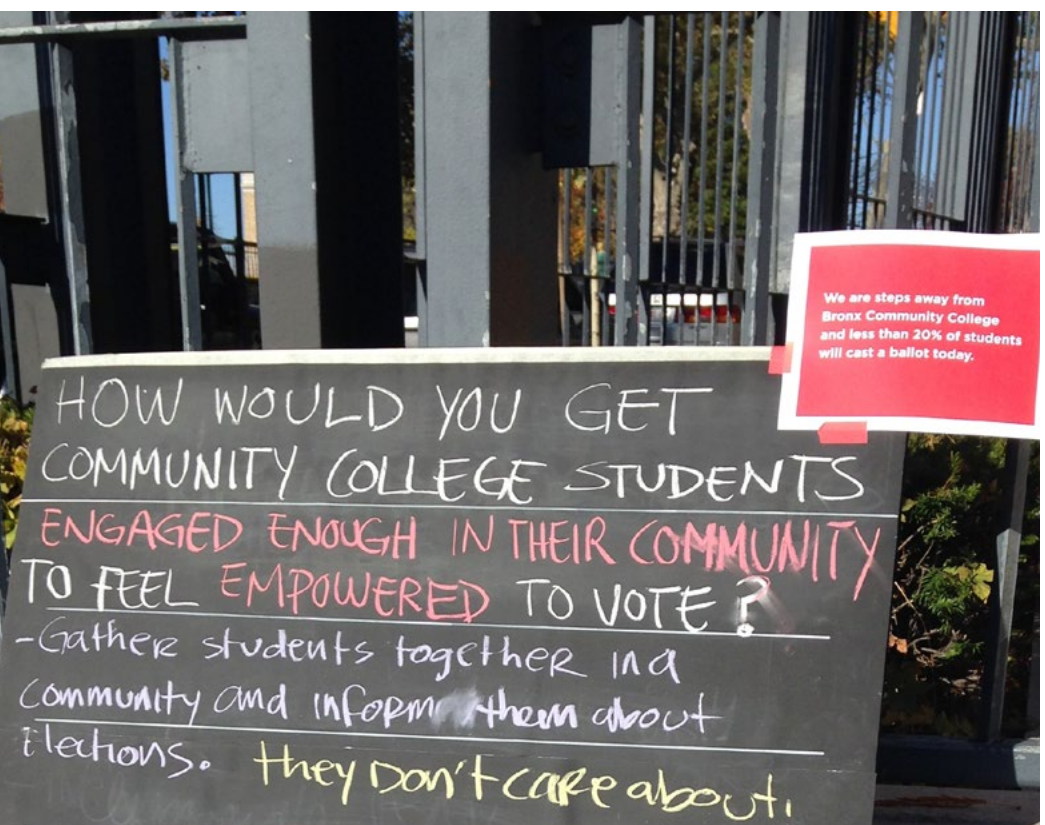 We are steps away from
Bronx Community College
and less than 20% of students
will cast a ballot today.
HOW WOULD YOU GET
COMMUNITY COLLEGE STUDENTS
ENGAGED ENOUGH IN THEIR COMMUNITY
TO FEEL EMPOWERED TO VOTE?
-Gather students together in a
community and inform them about
Elections. they Don't care about.